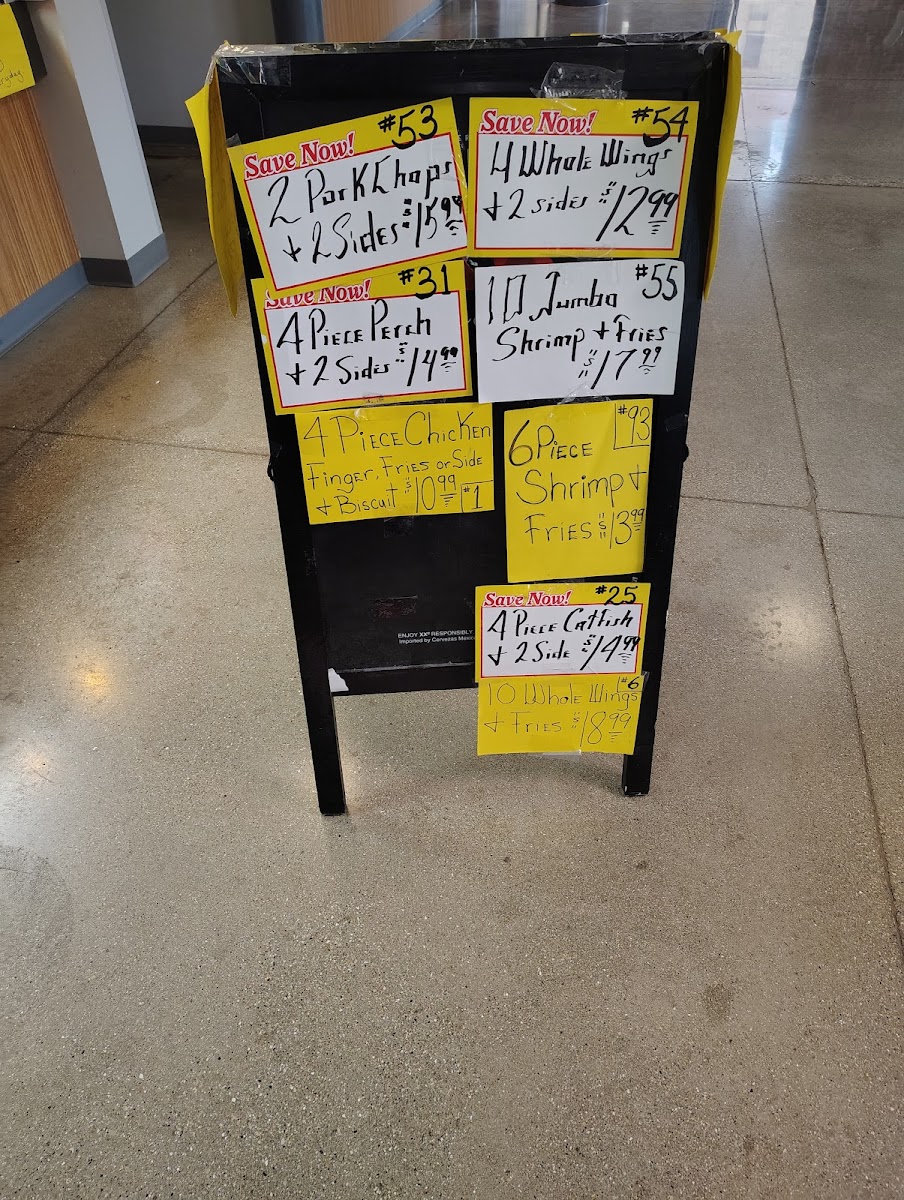 Save Now! #53
2 Pork Chops
+ 2 Sides $15.99
Save Now! #54
4 Whole Wings
+ 2 sides $12.99
Save Now! #31
4 Piece Perch
+ 2 Sides $14.99
10 Jumbo #55
Shrimp + Fries
$17.99
4 Piece Chicken
Finger, Fries or Side
+ Biscuit $10.99 #1
6 Piece #93
Shrimp +
Fries $13.99
Save Now! #25
4 Piece Catfish
+ 2 Side $14.99
10 Whole Wings #6
+ Fries $18.99
ENJOY XX® RESPONSIBLY
Imported by Cervezas